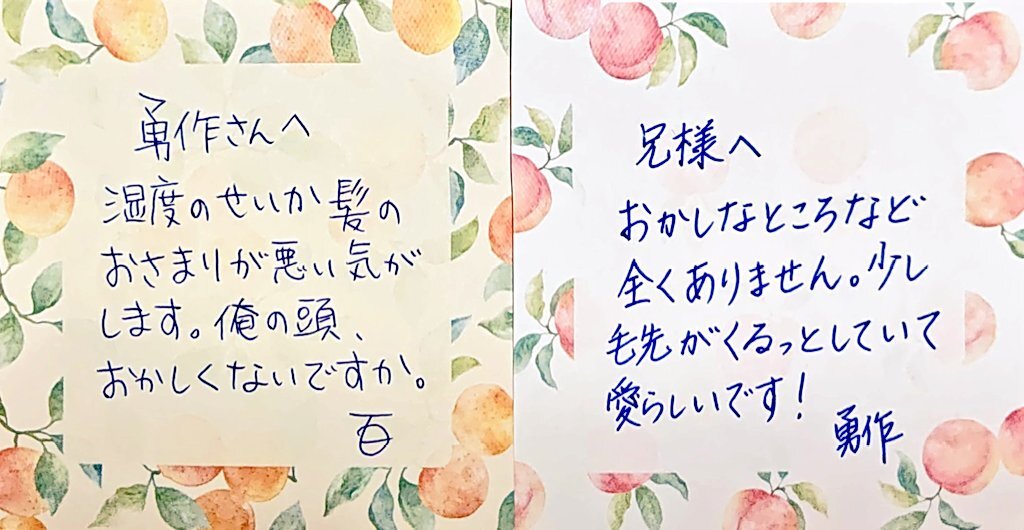 勇作さんへ
湿度のせいか髪の
おさまりが悪い気が
します。俺の頭、
おかしくないですか。
百
兄様へ
おかしなところなど
全くありません。少し
毛先がくるっとしていて
愛らしいです!
勇作